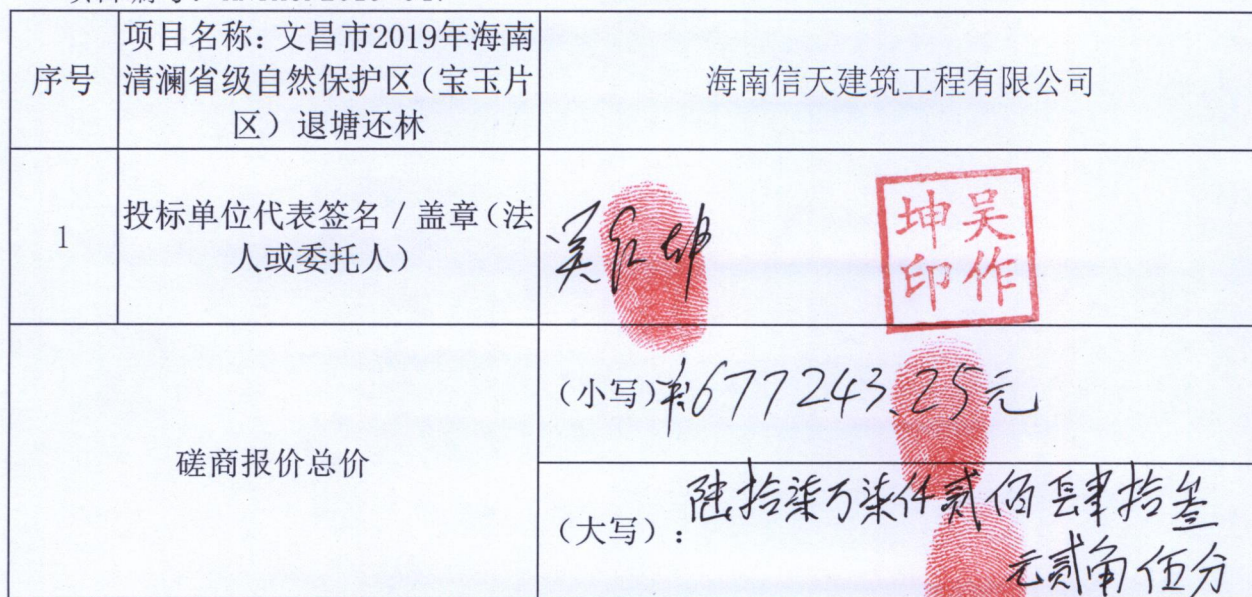 序号
项目名称：文昌市2019年海南
清澜省级自然保护区（宝玉片
区）退塘还林
海南信天建筑工程有限公司
1
投标单位代表签名／盖章（法
人或委托人）
吴作坤
吴作
坤印
磋商报价总价
（小写）¥:677243.25元
（大写）：
陆拾柒万柒仟贰佰肆拾叁
元贰角伍分